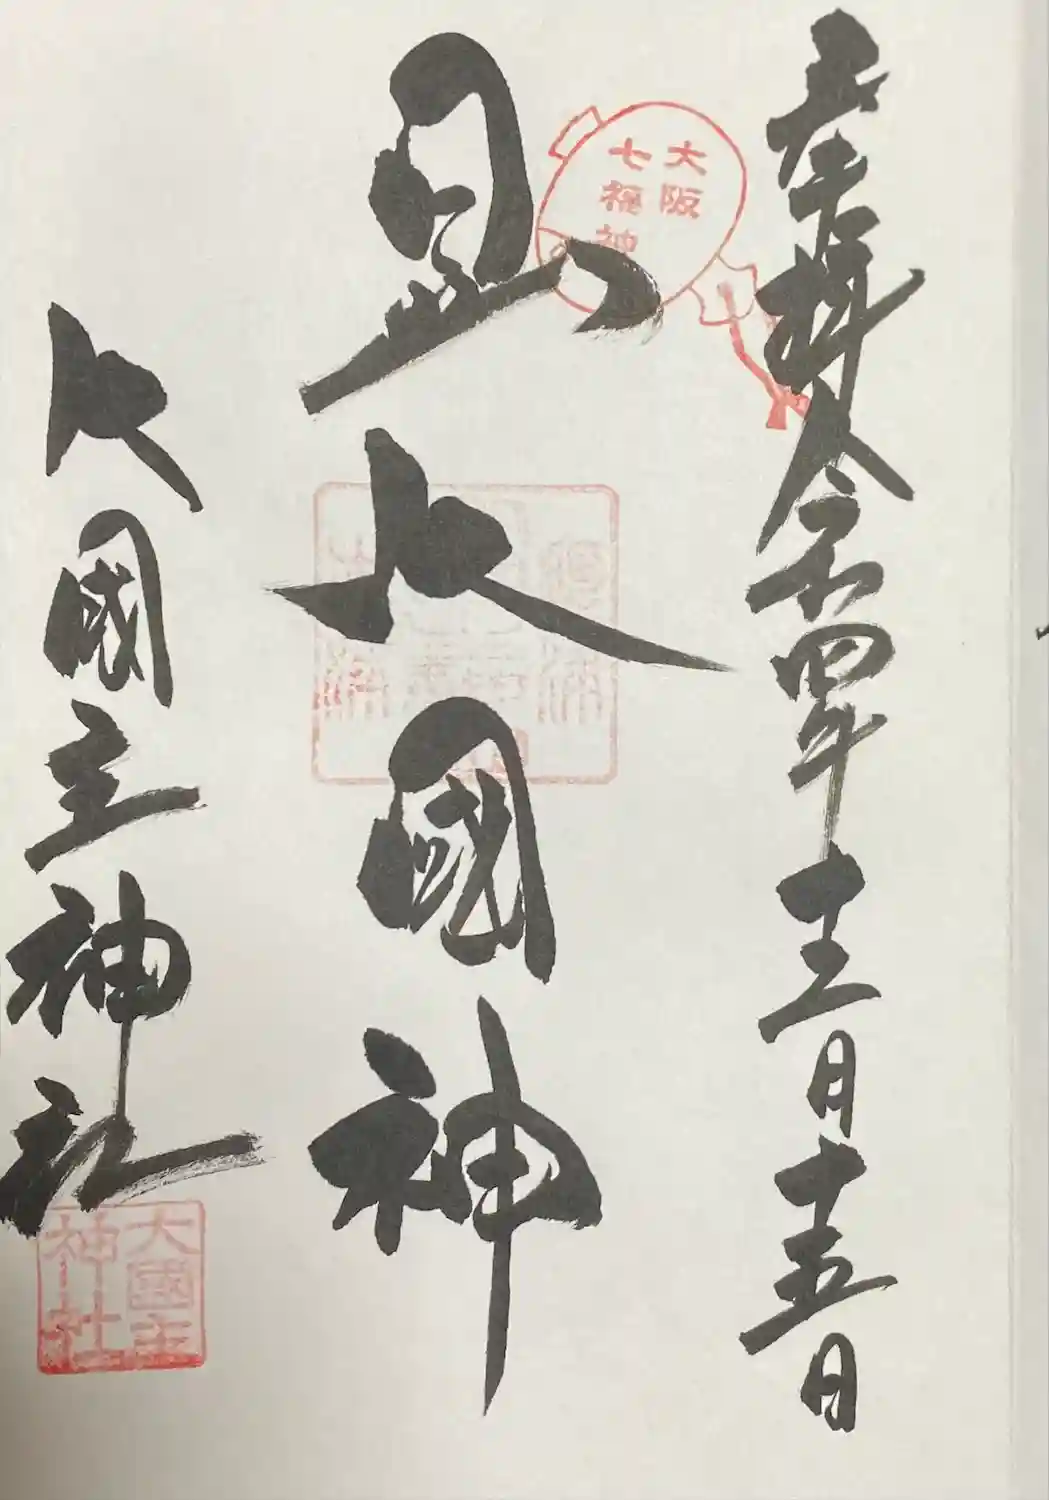 奉拝 令和四年十二月十五日
大阪
七福神
大國神
大國主神社
大國主
神社